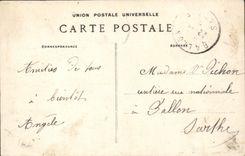 UNION POSTALE UNIVERSELLE
CARTE POSTALE
CORRESPONDANCE
ADRESSE
Amitiés de tous
à bientôt
Angèle
Madame Vve Pichon
rentière rue nationale
à Ballon
Sarthe